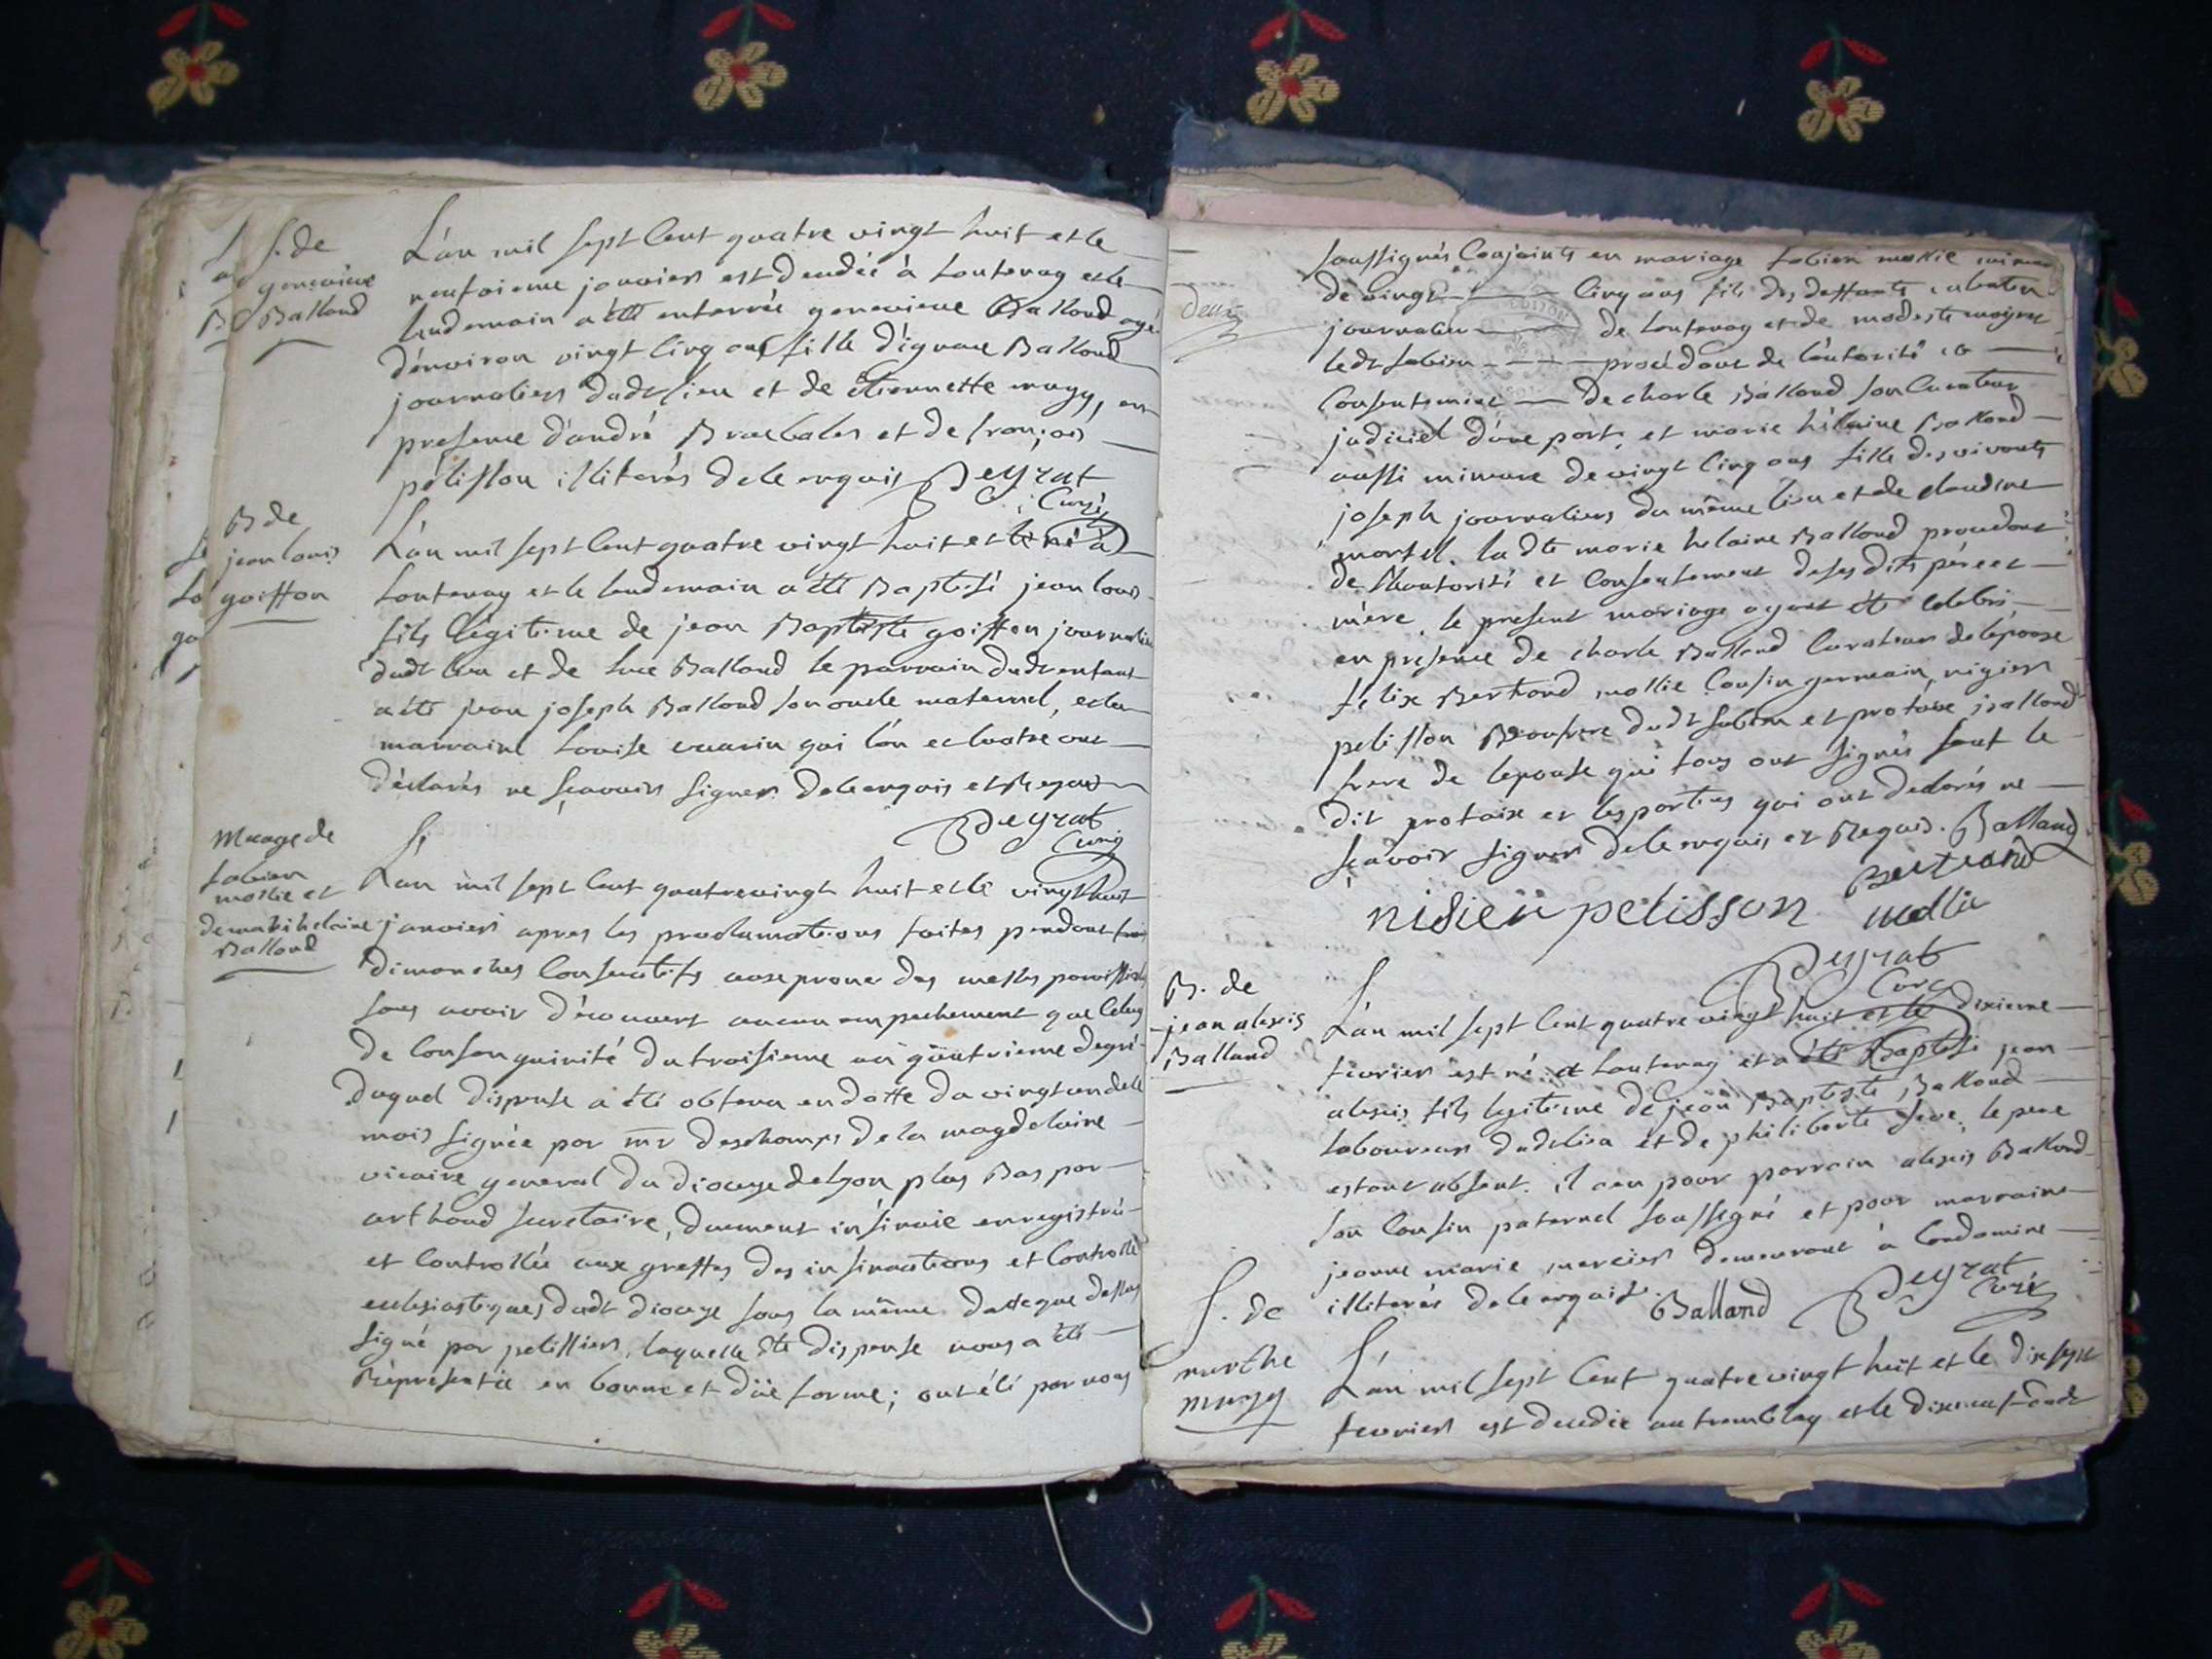 S. de
genevieve
Balland
L'an mil sept Cent quatre vingt huit et le
neufvieme janvier est decedée à Lantenay et le
lendemain a été enterrée genevieve Balland agé
d'environ vingt cinq ans fille d'ignace Balland
journalier dudt lieu et de étiennette mugy, en
presence d'andré et de françois
pélisson illiterés de ce enquis Peyrat
Curé
B de
jean louis
goiffon
L'an mil sept Cent quatre vingt huit et le né à
Lantenay et le lendemain a été Baptisé jean louis
fils légitime de jean Baptiste goiffon journalier
dudt lieu et de luce Balland le parrain dudt enfant
a été jean joseph Balland son oncle maternel, et la
marraine Louise qui l'un et l'autre ont
déclarés ne sçavoir signer de ce enquis et Requis
Peyrat
Curé
Mariage de
fabien
mollie et
de marie helaine
Balland
L'an mil sept Cent quatre vingt huit et le vingt huit
janvier apres les proclamations faites pendant trois
dimanches Consecutifs aux prone des messes paroissiales
sans avoir découvert aucun empechement que Celuy
de Consanguinité du troisieme au quatrieme degré
duquel dispense a été obtenu en datte du vingt un de ce
mois signée par mr deschamps de la magdelaine
vicaire general du diocèze de Lyon plus Bas par
arthaud secretaire, duement insinuée enregistrée
et Controllée aux greffes des insinuations et Controlle
eclesiastiques dudt diocèze sous la même datte que dessus
signé par pelissier, laquelle dte dispense nous a été
Représentée en bonne et düe forme; ont été par nous
soussignés Conjoints en mariage fabien mollie mineur
de vingt cinq ans fils des deffunts
journalier de Lantenay et de modeste moyne
ledt fabien procédant de l'autorité et
Consentement de charle Balland son Curateur
judiciel d'une part, et marie hélaine Balland
aussi mineure de vingt Cinq ans fille des vivants
joseph journaliers du même lieu et de claudine
martel. la dte marie helaine Balland procedant
de l'hautorité et Consentement de ses dits pére et
mére. le present mariage ayant été celebré
en presence de charle Balland Curateur de l'épouse
félix Bertrand mollie Cousin germain, nizier
pelisson Beaufrere dudt fabien et protaise Balland
frere de l'epouse qui tous ont signés sauf le
dit protaise et les parties qui ont declarés ne
sçavoir signer de ce enquis et Requis. Balland
Bertrand
nisier pelisson mollie
Peyrat
Curé
deux
B. de
jean alexis
Balland
L'an mil sept Cent quatre vingt huit et le dixieme
fevrier est né à Lantenay et a été Baptisé jean
alexis fils legitime de jean Baptiste Balland
laboureur dudt lieu et de philiberte seve, le pere
estant absent. il a eu pour parrain alexis Balland
son Cousin paternel soussigné et pour marraine
jeanne marie mercier demeurant à Condamine
illiterés de ce enquise. Balland Peyrat
Curé
S. de
marthe
mugy
L'an mil sept Cent quatre vingt huit et le dix sept
fevrier est decedée au tremblay et le dixneuf dudt